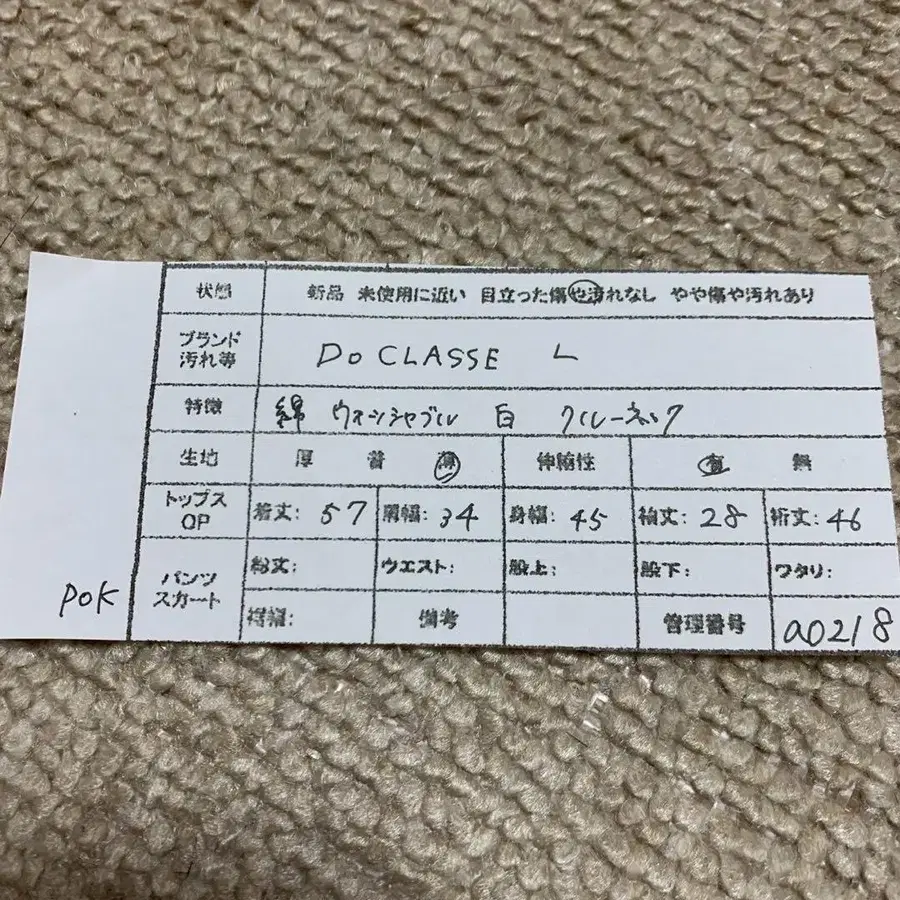 状態 新品 未使用に近い 目立った傷や汚れなし やや傷や汚れあり
ブランド
汚れ等 DoCLASSE L
特徴 綿 ウォッシャブル 白 クルーネック
生地 厚 普 薄 伸縮性 有 無
トップス
OP 着丈: 57 肩幅: 34 身幅: 45 袖丈: 28 裄丈: 46
パンツ
スカート 総丈: ウエスト: 股上: 股下: ワタリ:
裾幅: 備考 管理番号 a0218
POK